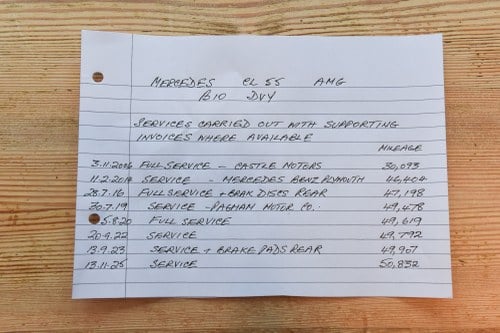 MERCEDES CL 55 AMG
B10 DVY
SERVICES CARRIED OUT WITH SUPPORTING
INVOICES WHERE AVAILABLE
MILEAGE
3.11.2006 FULL SERVICE - CASTLE MOTORS 30,093
11.2.2014 SERVICE - MERCEDES BENZ PLYMOUTH 46,404
28.7.16 FULL SERVICE + BRAK DISCS REAR 47,198
30.7.19 SERVICE - PAGHAM MOTOR CO.. 49,478
5.8.20 FULL SERVICE 49,619
20.9.22 SERVICE 49,792
13.9.23 SERVICE + BRAKE PADS REAR 49,907
13.11.25 SERVICE 50,832